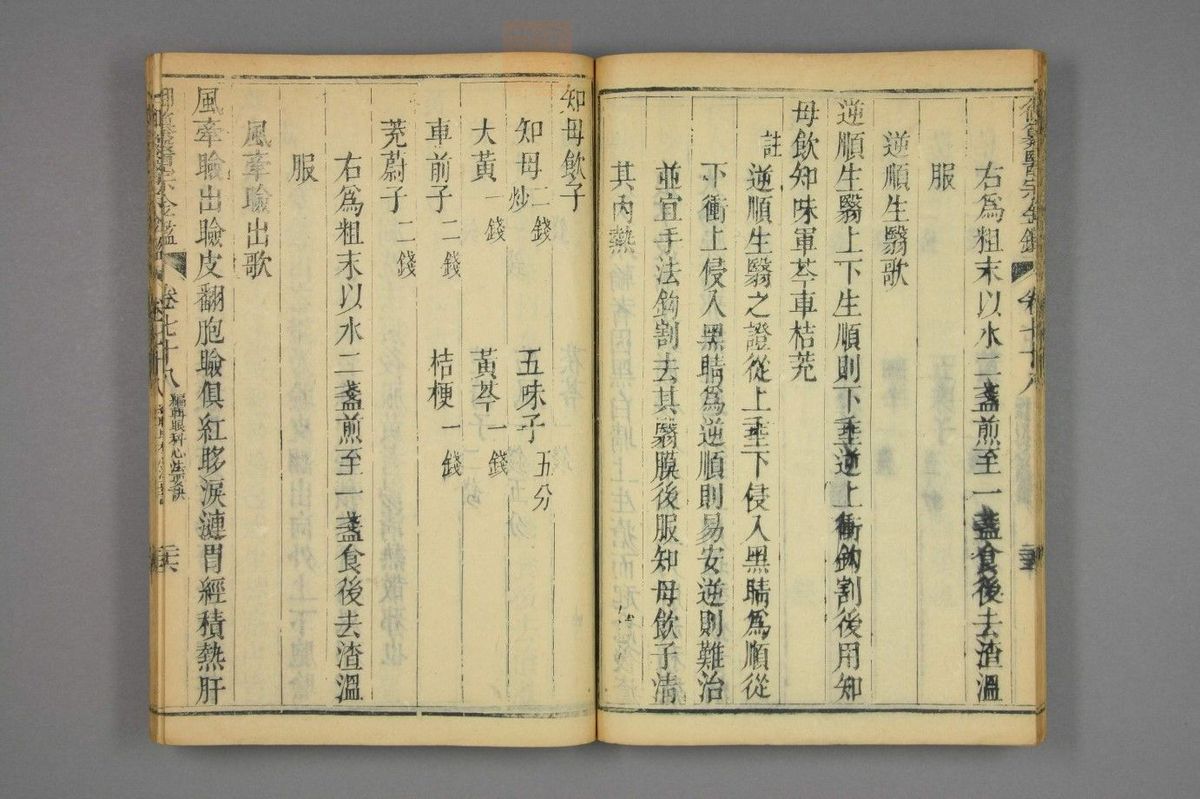 醫宗金鑑 卷七十八
右爲粗末以水二盞煎至一盞食後去渣溫
服
逆順生翳歌
逆順生翳上下生順則下垂逆上衝鈎割後用知
母飲知味軍芩車桔茺
註
逆順生翳之證從上垂下侵入黑睛爲順從
下衝上侵入黑睛爲逆順則易安逆則難治
並宜手法鈎割去其翳膜後服知母飲子清
其內熱
知母飲子
知母炒二錢 五味子五分
大黃一錢 黃芩一錢
車前子二錢 桔梗一錢
茺蔚子二錢
右爲粗末以水二盞煎至一盞食後去渣溫
服
風牽瞼出歌
風牽瞼出瞼皮翻胞瞼俱紅眵淚漣胃經積熱肝
醫宗金鑑 卷七十八 編輯眼科心法要訣 二六